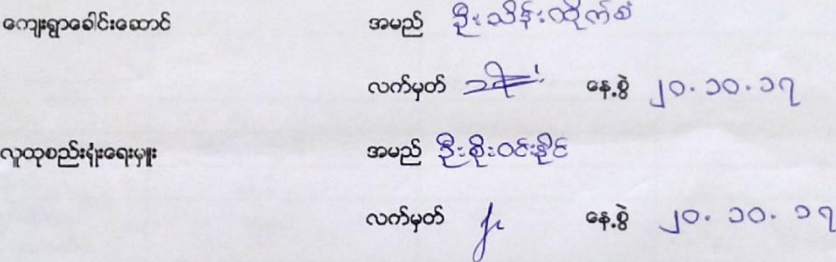 ကျေးရွာခေါင်းဆောင် အမည် ဦးသိန်းထိုက်စံ
လက်မှတ် နေ့စွဲ ၂၀.၁၀.၁၇
လူထုစည်းရုံးရေးမှူး အမည် ဦးစိုးဝင်းနိုင်
လက်မှတ် နေ့စွဲ ၂၀. ၁၀. ၁၇